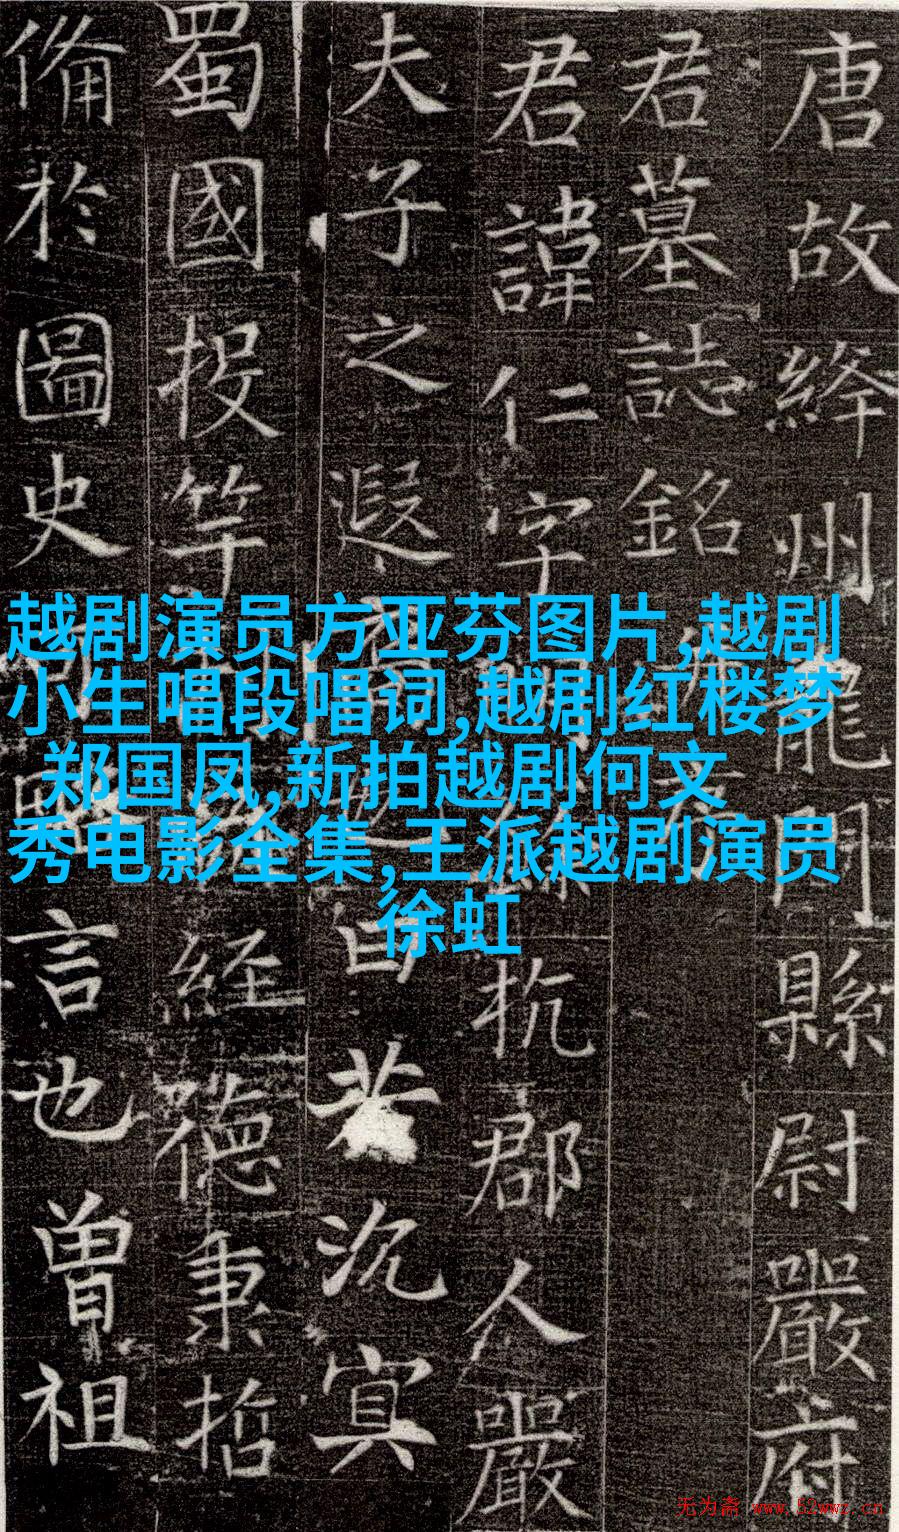 唐故絳州龍門縣尉嚴府
君墓誌銘
君諱仁字杭郡人嚴
夫子之遐曰若沉冥
蜀國投竿經德秉哲
備於圖史言也曾祖
越剧演员方亚芬图片,越剧
小生唱段唱词,越剧红楼梦
郑国凤,新拍越剧何文
秀电影全集,王派越剧演员
徐虹
无为斋 www.52wwz.cn